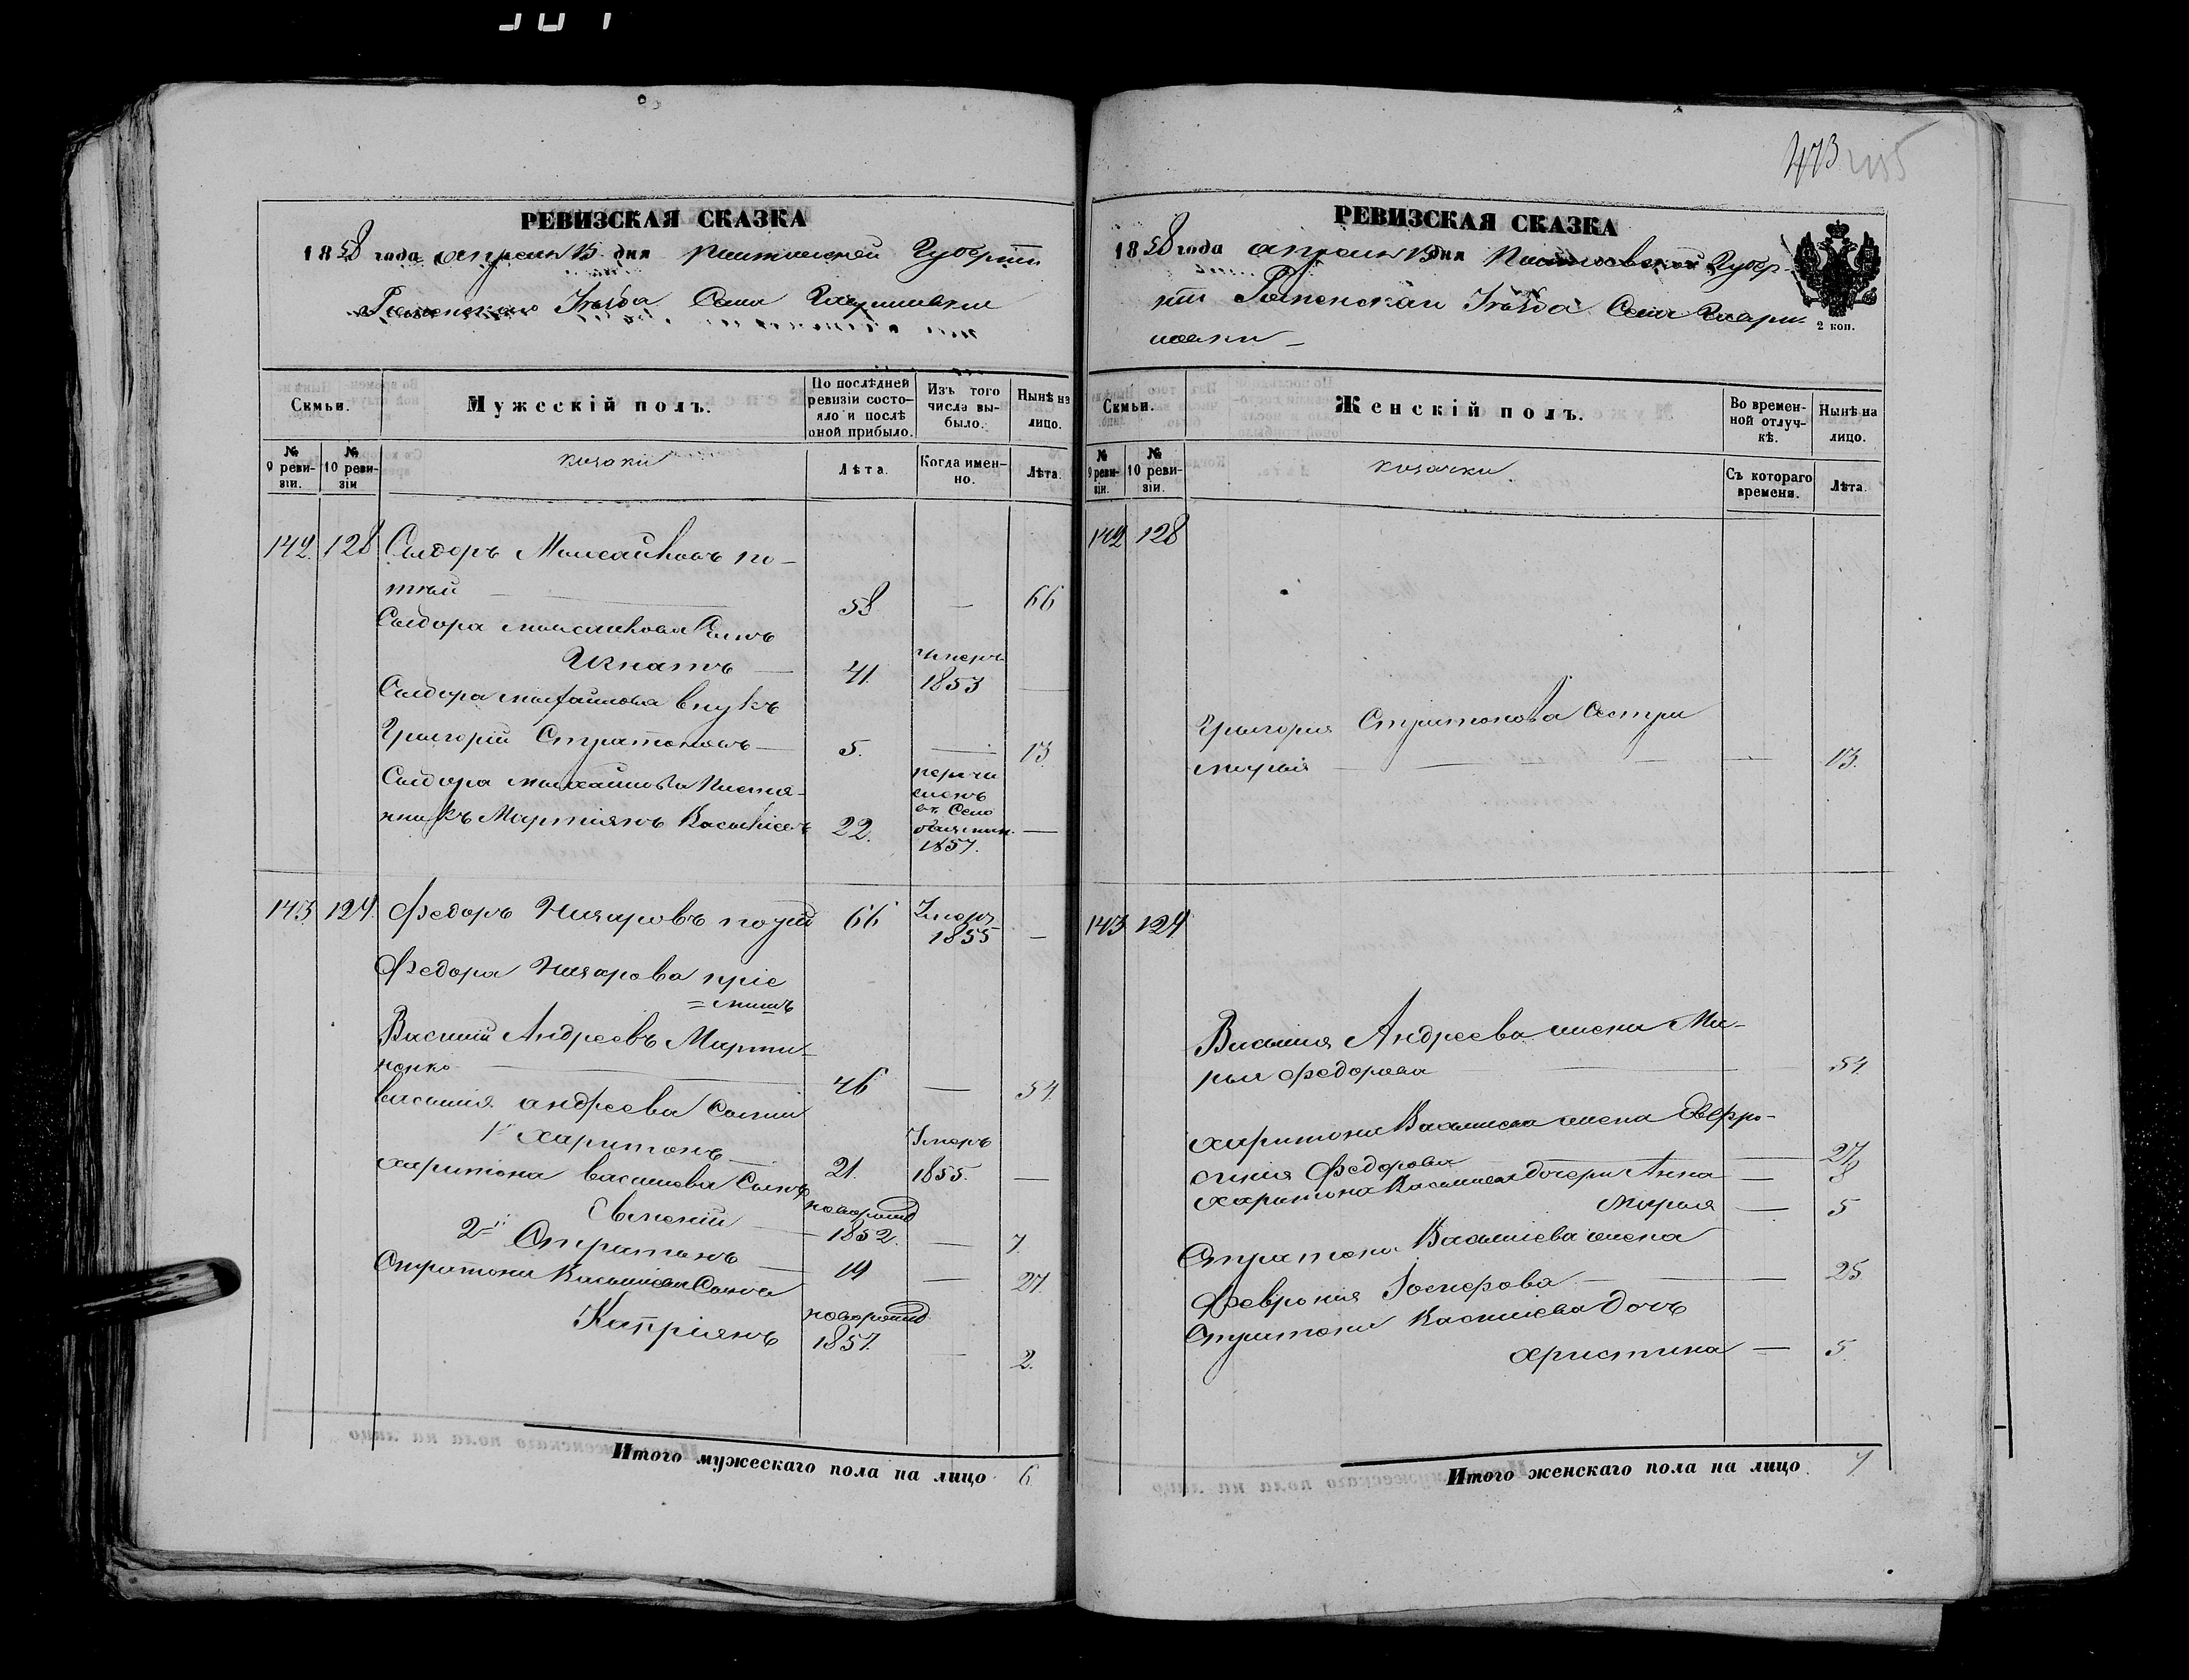 473
РЕВИЗСКАЯ СКАЗКА
1858 года апреля 15 дня Полтавской Губерніи
Роменскаго Уѣзда Села Гавришовки
Семьи.
Мужескій полъ.
По послѣдней ревизіи состояло и послѣ оной прибыло.
Изъ того числа выбыло.
Нынѣ на лицо.
№ 9 ревизіи.
№ 10 ревизіи
козаки
Лѣта.
Когда именно.
Лѣта.
142. 128
Сидоръ Михайловъ по-
58 — 66
Сидора Михайлова Сынъ
Игнатъ — 41. Умеръ 1853 —
Сидора Михайлова внукъ
Григорій Стратоновъ — 5. — 13
Сидора Михайлова племя-
нникъ Мартіянъ Васильевъ 22. перечисленъ 1857. —
143 129. Федоръ Назаровъ 66 Умеръ 1855 —
Федора Назарова пріе
=мышъ
Василій Андреевъ Марти-
ненко 46 — 54.
Василія Андреева Сыны
1й Харитонъ — 21. Умеръ 1855. —
Харитона Васильева Сынъ
Евменій — новорожд 1852. — 7
2й Стратонъ — 19 — 27.
Стратона Васильева Сынъ
Капріянъ новорожд 1857. — 2.
Итого мужескаго пола на лицо 6
РЕВИЗСКАЯ СКАЗКА
1858 года апреля 15 дня Полтавской Губер-
ніи Роменскаго Уѣзда Села Гаври-
шовки —
2 коп.
Семьи.
Женскій полъ.
Во временной отлучкѣ.
Нынѣ на лицо.
№ 9 ревизіи.
№ 10 ревизіи.
козачки
Съ котораго времени.
Лѣта.
142 128
Григорія Стратонова Сестра
Марья — — 13.
143 129
Василія Андреева жена Ма-
рья Федорова 54
Харитона Васильева жена Евфро-
синія Федорова — 27
Харитона Васильева дочери Анна — 8
Марья — 5
Стратона Васильева жена
Февронія Іосифова — — 25
Стратона Васильева дочь
Христина — 5.
Итого женскаго пола на лицо. 7